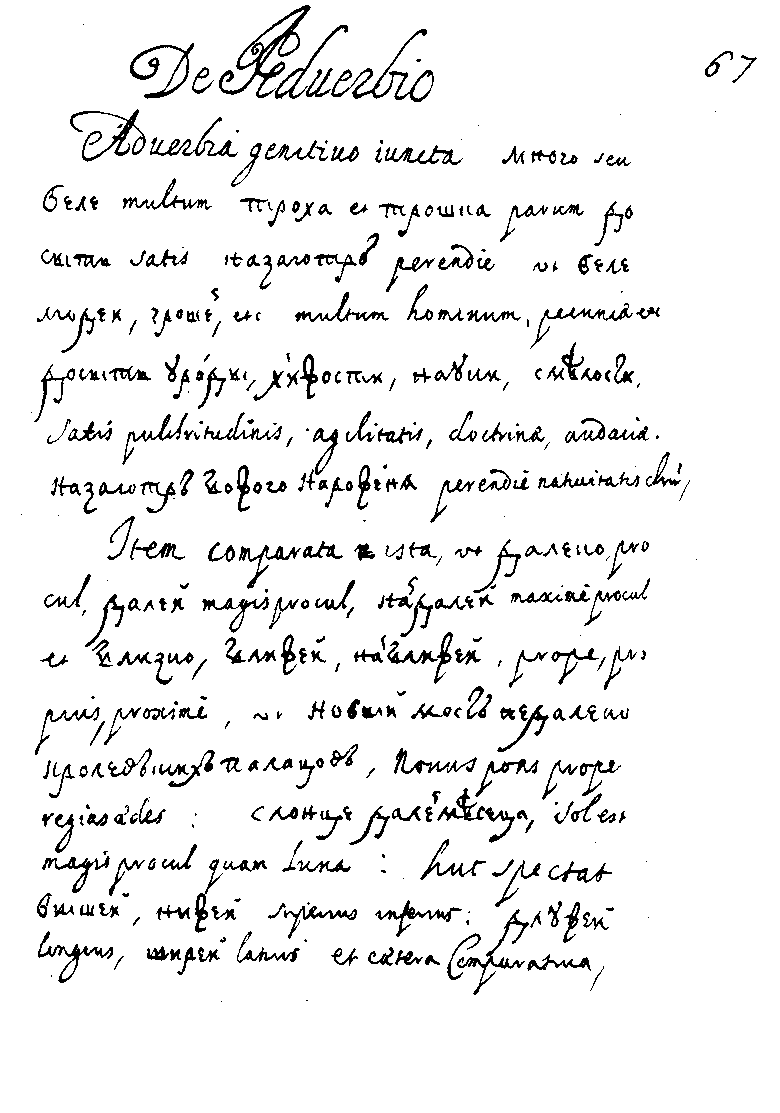 De Aduerbio
67
Aduerbia genitiuo iuncta много seu
веле multum троха et трошка parum до
скитки satis назавотръ perendie ut веле
людеи, грошей, etc multum hominum, pecuniæ etc
доскитки уроды, хижости, науки, смѣлости,
satis pulchritudinis, agilitatis, doctrinæ, audaciæ.
назавотръ божого нарожен҃ѧ perendie natiuitatis chri,
Item comparata ista, ut далеко, pro
cul, далей magis procul, найдалей maximè procul
et близко, ближей, найближей, prope, pro
pius, proximè, ut новый мостъ недалеко
кролевскихъ палацовъ, Nouus pons prope
regias ædes : слонце далей мѣсеца, sol est
magis procul quam Luna : huc spectat
вышей, нижей superius inferius: длужей
longius, ширей latius et cætera Comparatiua,